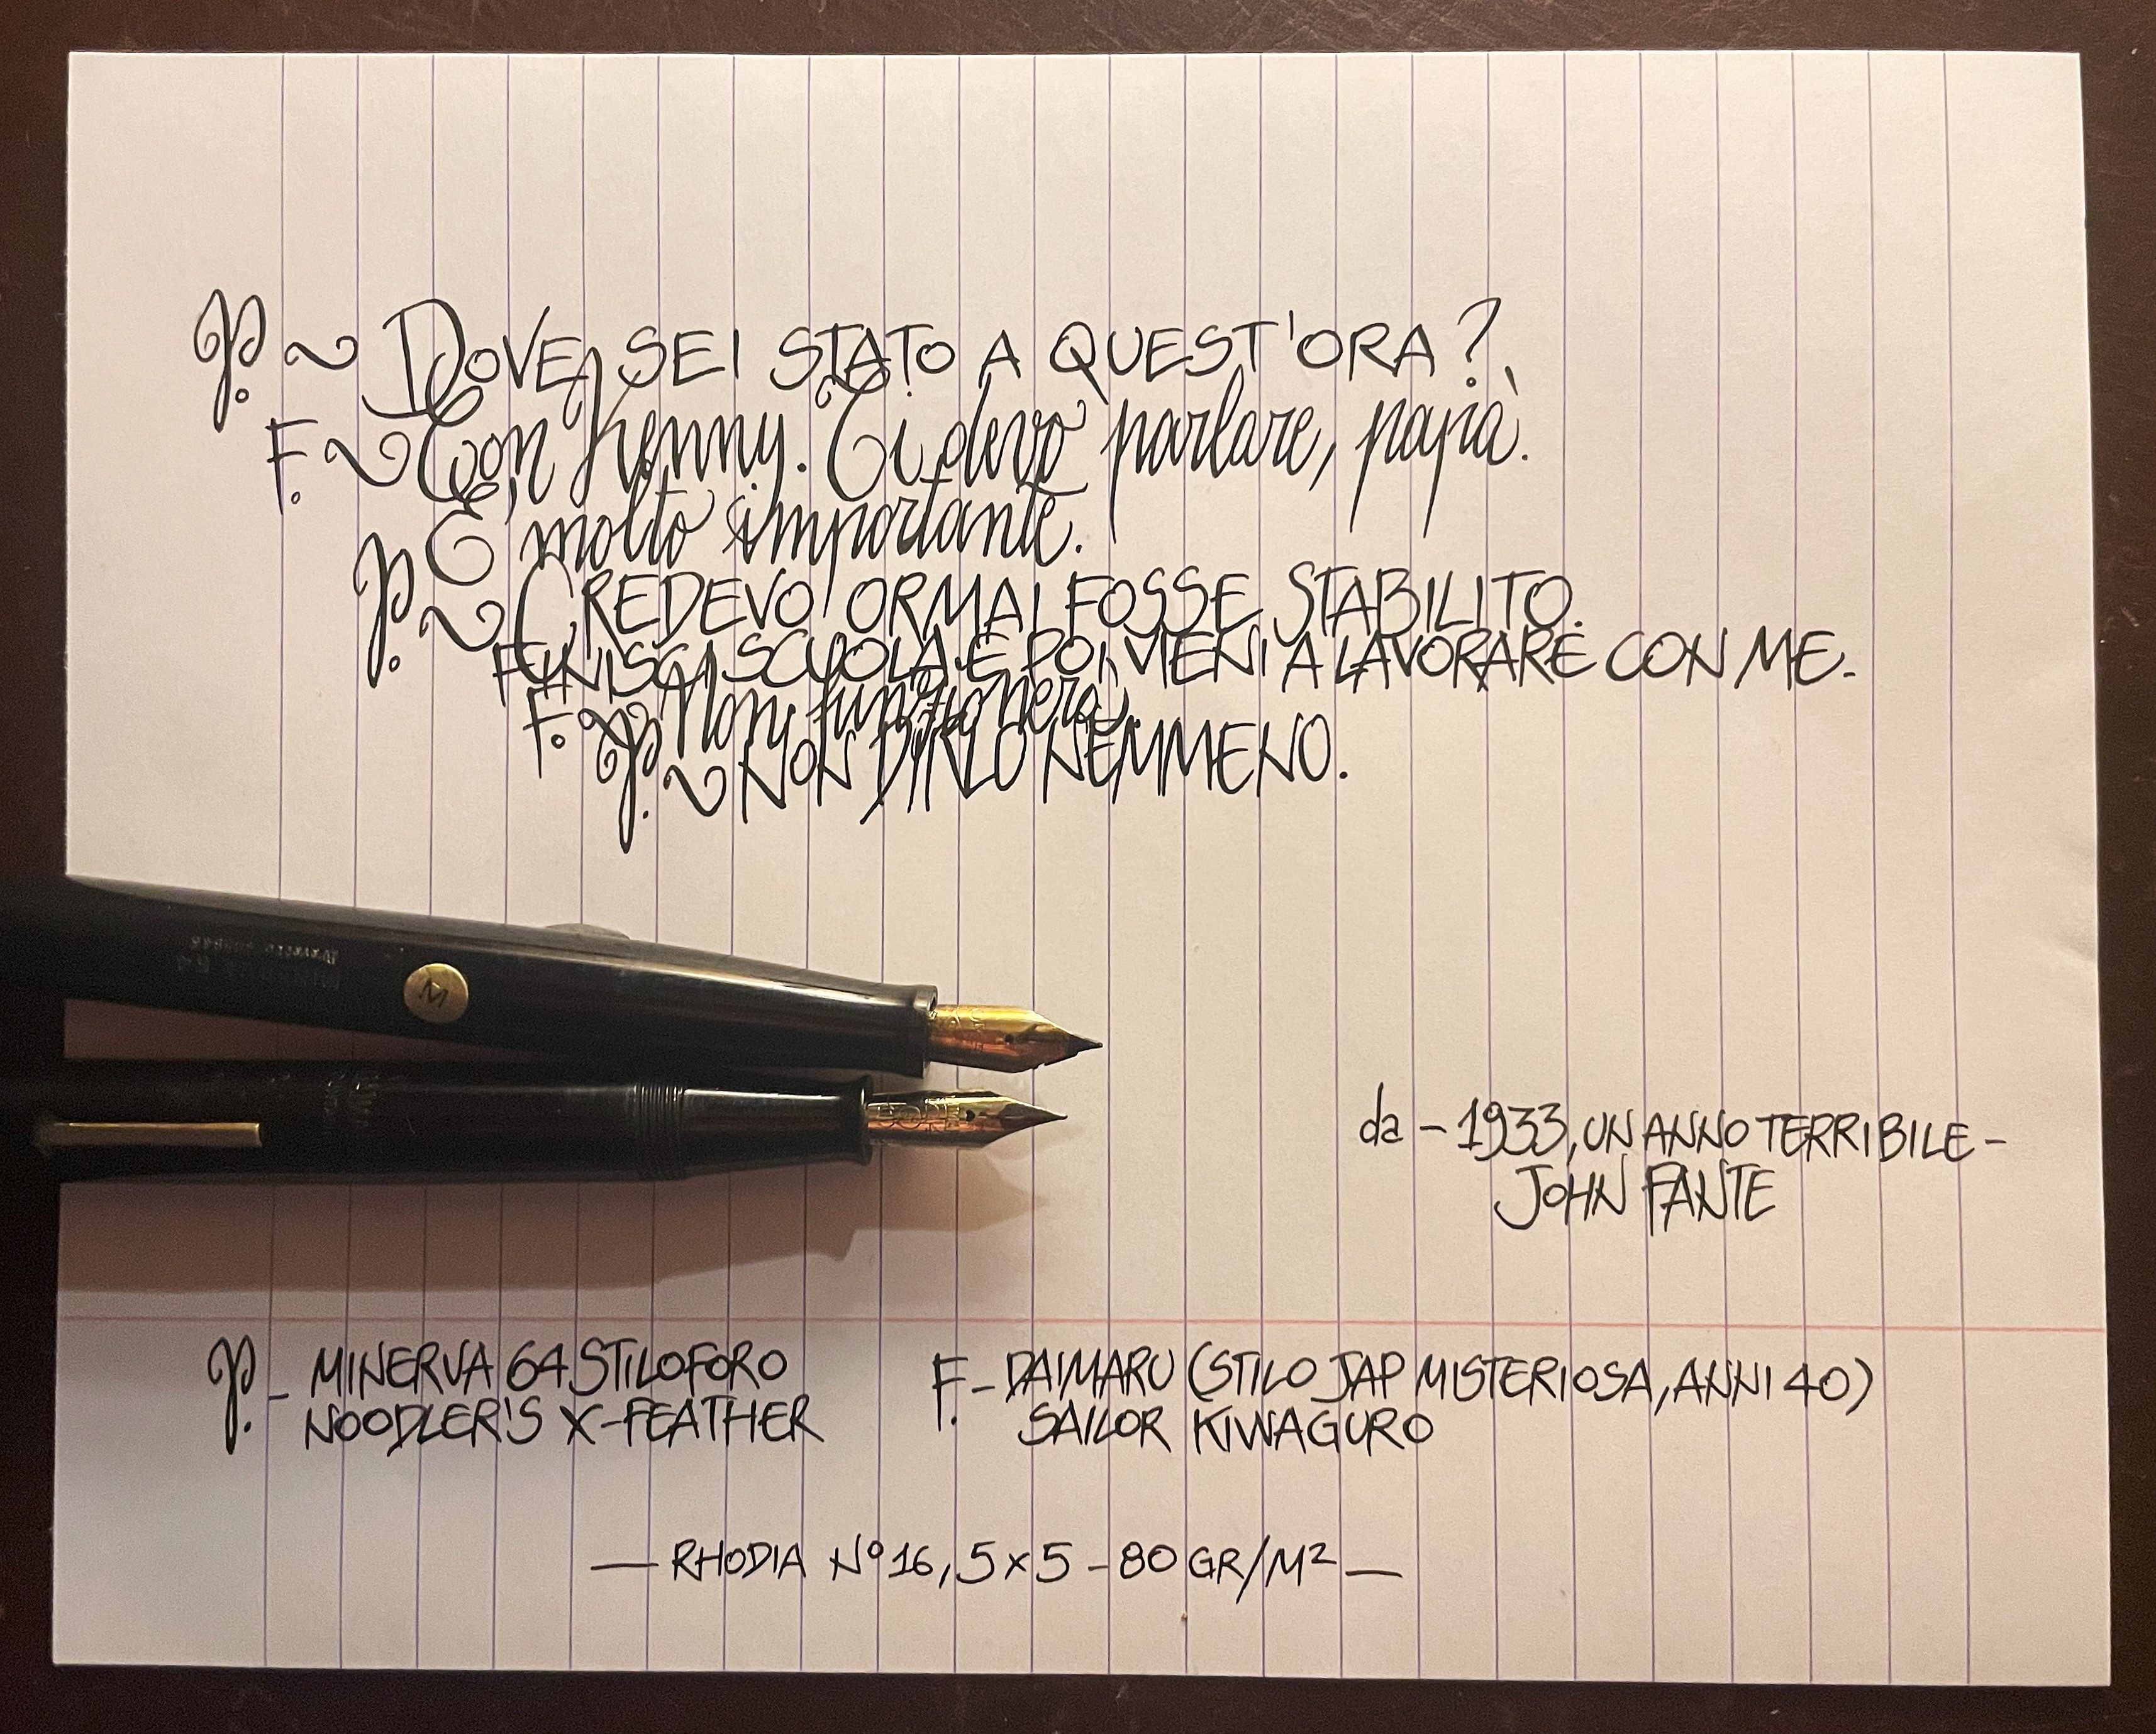 P. ~ DOVE SEI STATO A QUEST'ORA?
F. ~ Con Kenny. Ti devo parlare, papà.
È molto importante.
P. ~ CREDEVO ORMAI FOSSE STABILITO.
FINISCI SCUOLA E POI VIENI A LAVORARE CON ME.
F. ~ Non funzionerà.
P. ~ NON DIRLO NEMMENO.
M
da - 1933, UN ANNO TERRIBILE -
JOHN FANTE
P. - MINERVA 64 STILOFORO
NOODLER'S X-FEATHER
F. - DAIMARU (STILO JAP MISTERIOSA, ANNI 40)
SAILOR KIWAGURO
— RHODIA N° 16, 5x5 - 80 GR/M² —